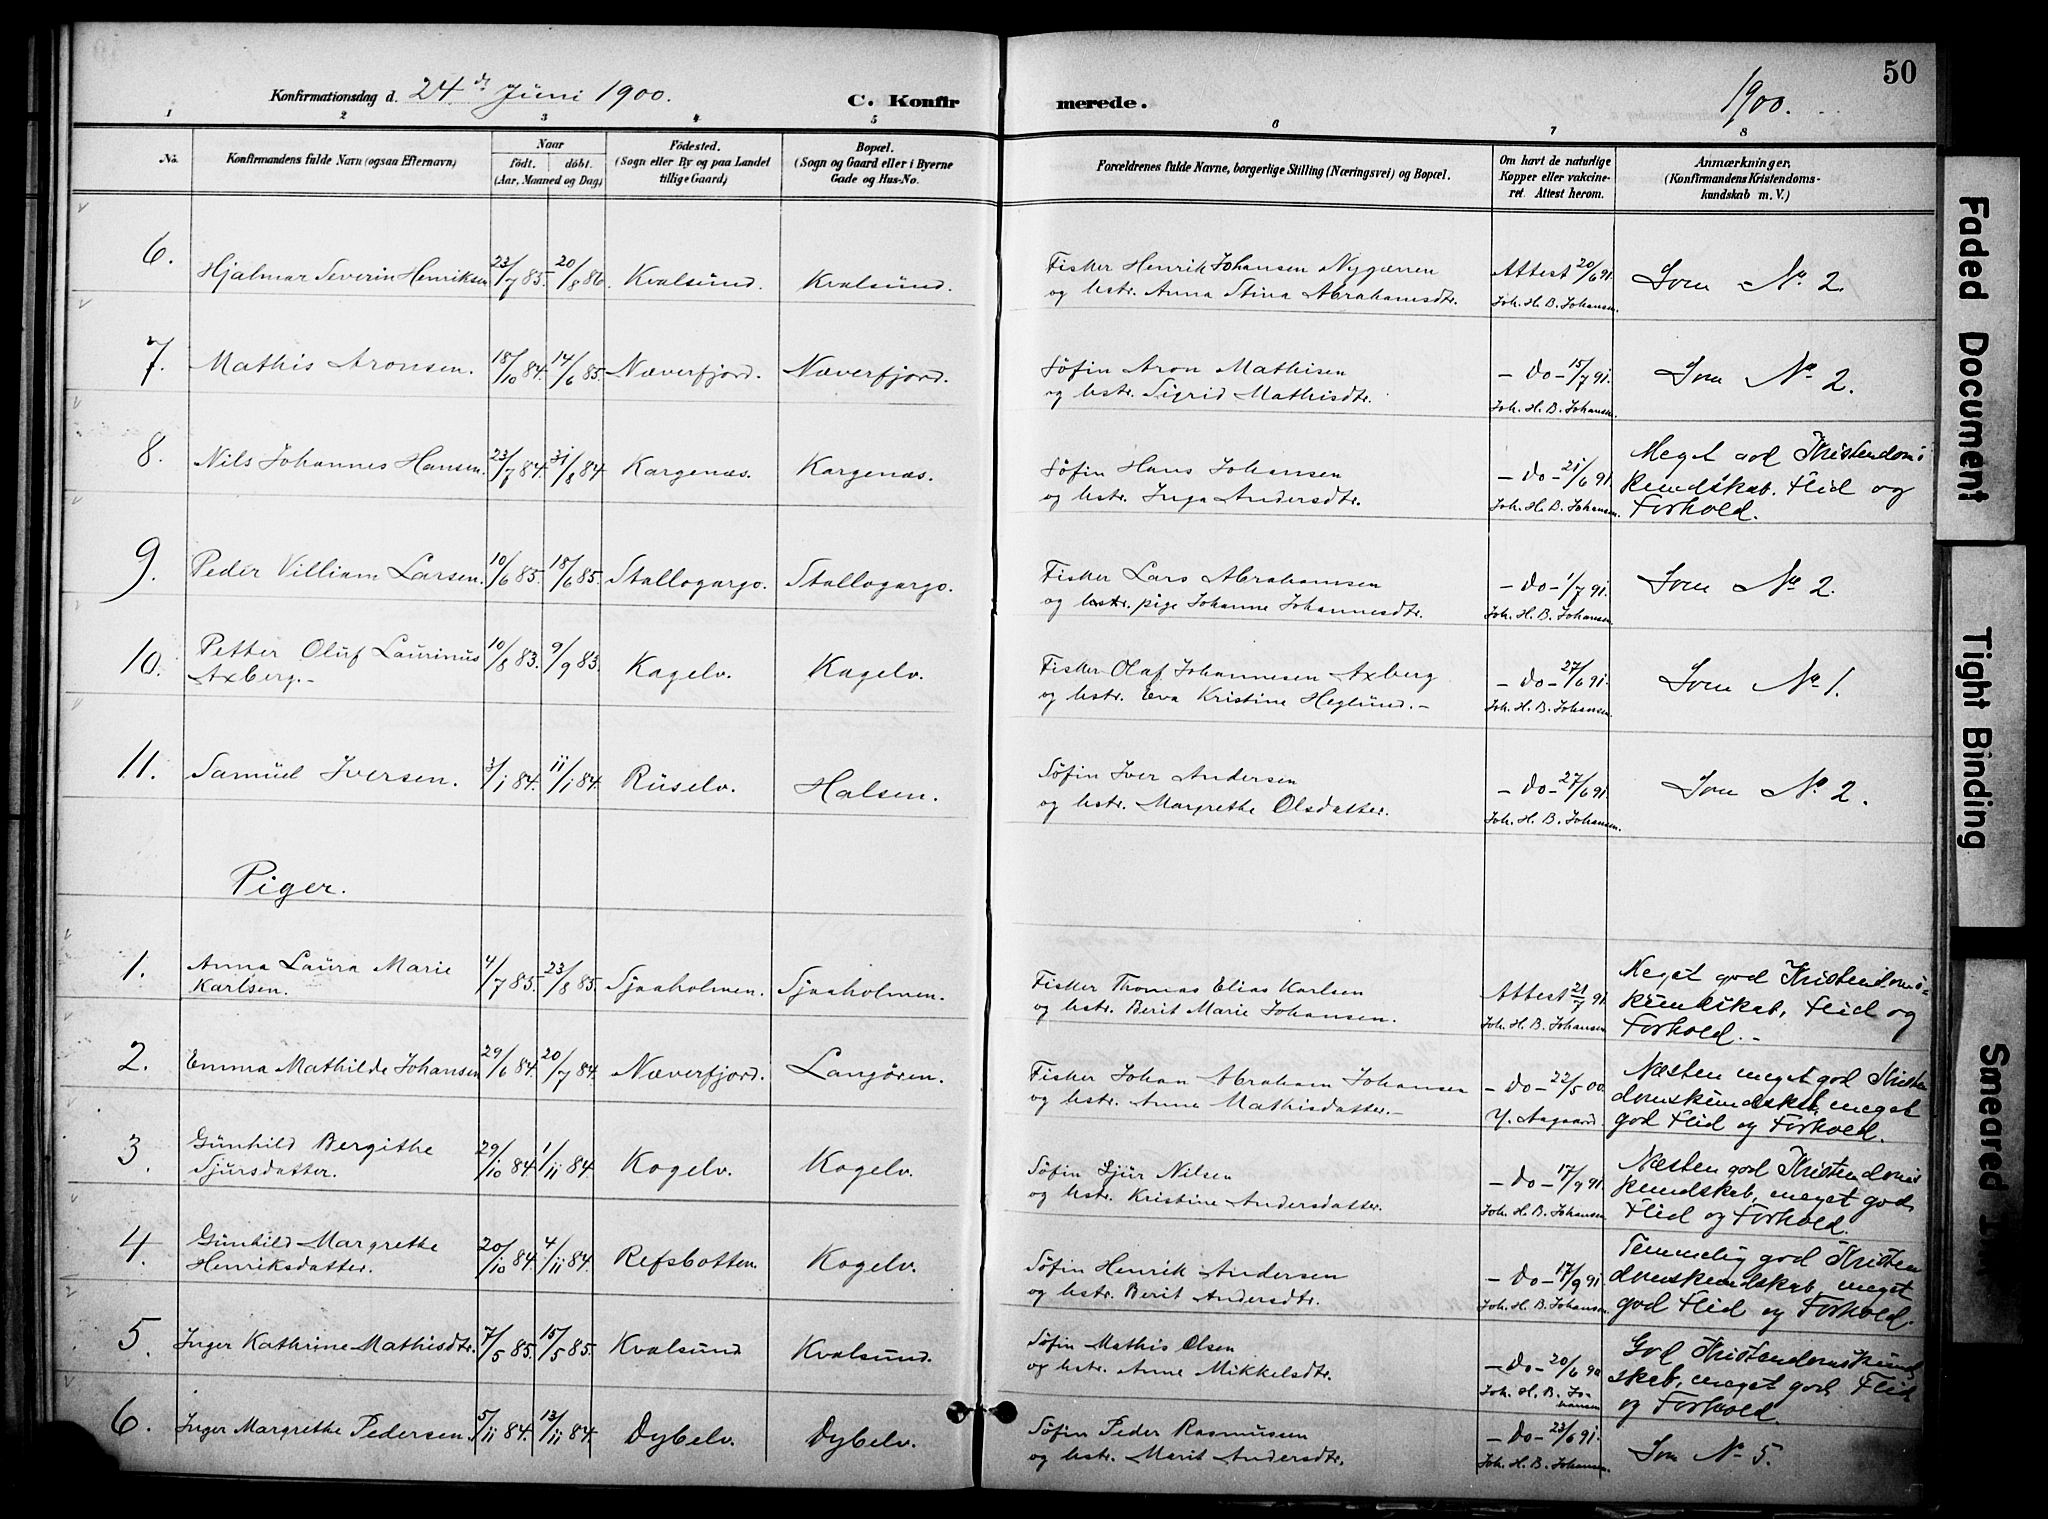 Konfirmationsdag d. 24de Juni 1900.
C. Konfirmerede.
1900.
50
1 2 3 4 5 6 7 8
No.
Konfirmandens fulde Navn (ogsaa Efternavn)
Naar
født. døbt.
(Aar, Maaned og Dag)
Fødested.
(Sogn eller By og paa Landet
tillige Gaard)
Bopæl.
(Sogn og Gaard eller i Byerne
Gade og Hus-No.
Forældrenes fulde Navne, borgerlige Stilling (Næringsvei) og Bopæl.
Om havt de naturlige
Kopper eller vakcine-
ret. Attest herom.
Anmærkninger,
(Konfirmandens Kristendoms-
kundskab m. V.)
6. Hjalmar Severin Henriksen 23/7 85. 20/8 86. Kvalsund. Kvalsund. Fisker Henrik Johansen Nygaren Attest 20/6 91. Som No 2.
og hstr. Anna Stina Abrahamsdtr. Joh. H. B. Johansen.
7. Mathis Aronsen. 18/10 84. 14/6 85. Næverfjord. Næverfjord. Søfin Aron Mathisen – Do – 15/7 91. Som No 2.
og hstr. Sigrid Mathisdtr. Joh. H. B. Johansen
8. Nils Johannes Hansen. 23/7 84. 31/8 84. Kargenæs. Kargenæs. Søfin Hans Johansen – Do – 21/6 91. Meget god Kristendoms
og hstr. Inga Andersdtr. Joh. H. B. Johansen kundskab. Flid og
Forhold.
9. Peder Villiam Larsen. 10/6 85. 18/6 85. Stallogargo. Stallogargo. Fisker Lars Abrahamsen – Do – 1/7 91. Som No 2.
og hstr. pige Johanne Johannesdtr. Joh. H. B. Johansen.
10. Petter Oluf Laurinus 10/8 83. 9/9 83. Kagelv. Kagelv. Fisker Olaf Johannesen Axberg – Do – 27/6 91. Som No 1.
Axberg.– og hstr. Eva Kristine Heglund.– Joh. H. B. Johansen.
11. Samuel Iversen. 3/1 84. 11/1 84. Ruselv. Halsen. Søfin Iver Andersen – Do – 27/6 91. Som No 2.
og hstr. Margrethe Olsdatter. Joh. H. B. Johansen.
Piger.
1. Anna Laura Marie 4/7 85. 23/8 85. Sjaaholmen. Sjaaholmen. Fisker Thomas Elias Karlsen Attest 21/7 91. Meget god Kristendoms-
Karlsen. og hstr. Berit Marie Johansen. Joh. H. B. Johansen kundskab, Flid og
Forhold.–
2. Emma Mathilde Johansen 29/6 84. 20/7 84. Næverfjord. Langøren. Fisker Johan Abraham Johansen – Do – 22/5 00. Næsten meget god Kristen
og hstr. Anne Mathisdatter.– Y. Aagaard. domskundskab, meget
god Flid og Forhold.
3. Gunhild Bergithe 29/10 84. 1/11 84. Kogelv. Kogelv. Søfin Sjur Nilsen – Do – 17/9 91. Næsten god Kristendoms
Sjursdatter. og hstr. Kristine Andersdatter. Joh. H. B. Johansen kundskab, meget god
Flid og Forhold.
4. Gunhild Margrethe 20/10 84. 4/11 84. Refsbotten. Kogelv. Søfin Henrik Andersen – Do – 17/9 91. Temmelig god Kristen
Henriksdatter. og hstr. Berit Andersdtr. Joh. H. B. Johansen. domskundskab, meget
god Flid og Forhold.
5. Inger Kathrine Mathisdtr. 7/5 85. 15/5 85. Kvalsund Kvalsund. Søfin Mathis Olsen – Do – 20/6 90 God Kristendomskund
og hstr. Anne Mikkelsdtr. Joh. H. B. Johansen skab, meget god Flid
og Forhold.
6. Inger Margrethe Pedersen. 5/11 84. 13/11 84. Dybelv. Dybelv. Søfin Peder Rasmussen – Do – 23/6 91. Som No 5.
og hstr. Marit Andersdtr. Joh. H. B. Johansen.
Faded Document
Tight Binding
Smeared